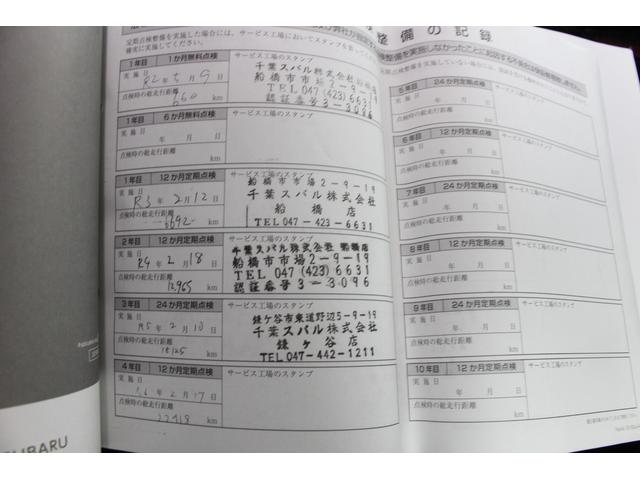 整備の記録
定期点検整備を実施した場合には、サービス工場においてスタンプを
確実に実施してください。
1年目 1か月無料点検
サービス工場のスタンプ
実施日
R2年5月9日
点検時の総走行距離
660 km
千葉スバル株式会社船橋店
船橋市市場2-9-19
TEL 047 (423) 6631
認証番号3-3096
1年目 6か月無料点検
サービス工場のスタンプ
実施日
年 月 日
点検時の総走行距離
km
1年目 12か月定期点検
サービス工場のスタンプ
実施日
R3年2月12日
点検時の総走行距離
6692 km
船橋市市場2-9-19
千葉スバル株式会社
船橋店
TEL 047-423-6631
2年目 12か月定期点検
サービス工場のスタンプ
実施日
R4年2月18日
点検時の総走行距離
12,965 km
千葉スバル株式会社船橋店
船橋市市場2-9-19
TEL 047 (423) 6631
認証番号3-3096
3年目 24か月定期点検
サービス工場のスタンプ
実施日
R5年2月10日
点検時の総走行距離
18,125 km
鎌ケ谷市東道野辺5-9-19
千葉スバル株式会社
鎌ヶ谷店
TEL 047-442-1211
4年目 12か月定期点検
サービス工場のスタンプ
実施日
年2月17日
点検時の総走行距離
km
5年目 24か月定期点検
サービス工場のスタンプ
実施日
年 月 日
点検時の総走行距離
km
6年目 12か月定期点検
サービス工場のスタンプ
実施日
年 月 日
点検時の総走行距離
km
7年目 24か月定期点検
サービス工場のスタンプ
実施日
年 月 日
点検時の総走行距離
km
8年目 12か月定期点検
サービス工場のスタンプ
実施日
年 月 日
点検時の総走行距離
km
9年目 24か月定期点検
サービス工場のスタンプ
実施日
年 月 日
点検時の総走行距離
km
10年目 12か月定期点検
サービス工場のスタンプ
実施日
年 月 日
点検時の総走行距離
km
SUBARU